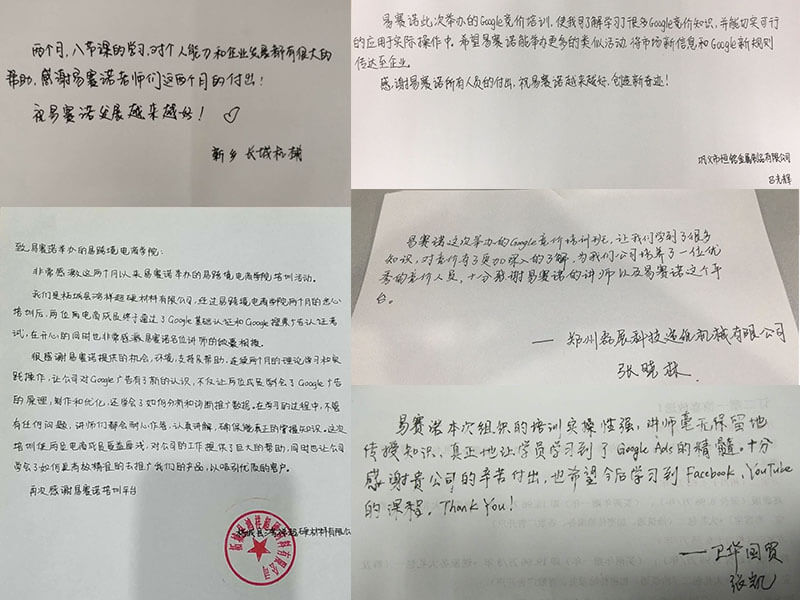 两个月，八节课的学习，对个人能力和企业发展都有很大的
帮助，感谢易赛诺老师们这两个月的付出！
祝易赛诺发展越来越好！
新乡 长城机械
易赛诺此次举办的Google竞价培训，使我了解学习了很多Google竞价知识，并能切实可行
的应用于实际操作中，希望易赛诺能举办更多的类似活动 将市场新信息和Google新规则
传达至企业。
感谢易赛诺所有人员的付出，祝易赛诺越来越好，创造新奇迹！
巩义市恒铭金属制品有限公司
吕光辉
致易赛诺举办的易跨境电商学院：
非常感激这两个月以来易赛诺举办的易跨境电商学院培训活动。
我们是柘城县鸿祥超硬材料有限公司，经过易跨境电商学院两个月的悉心
培训后，两位电商成员终于通过了Google基础认证和Google搜索广告认证考
试，在开心的同时也非常感激易赛诺各位讲师的倾囊相授。
很感谢易赛诺提供的机会，环境，支持及帮助，连续两个月的理论学习和实
践操作，让公司对Google广告有了新的认识，不仅让两位成员学会了Google广告
的原理，制作和优化，还学会了如何分析和诊断推广数据。在学习的过程中，不管
有任何问题，讲师们都会耐心作答，认真讲解，确保能真正的掌握知识。这次
培训使两位电商成员受益匪浅，对公司的工作提供了巨大的帮助，同时也让公司
学会了如何更有效精准的去推广我们的产品，以吸引优质的客户。
再次感谢易赛诺培训平台
柘城县鸿祥超硬材料有限公
易赛诺这次举办的Google竞价培训班，让我们学到了很多
知识，对竞价有了更加深入的了解，为我们公司培养了一位优
秀的竞价人员，十分感谢易赛诺的讲师以及易赛诺这个平
台。
— 郑州磊展科技造纸机械有限公司
张晓
易赛诺本次组织的培训实操性强，讲师毫无保留地
传授知识、真正地让学员学习到了Google Ads的精髓。十分
感谢贵公司的辛苦付出，也希望今后学习到Facebook、YouTube
的课程。Thank You！
——卫华国贸
张凯